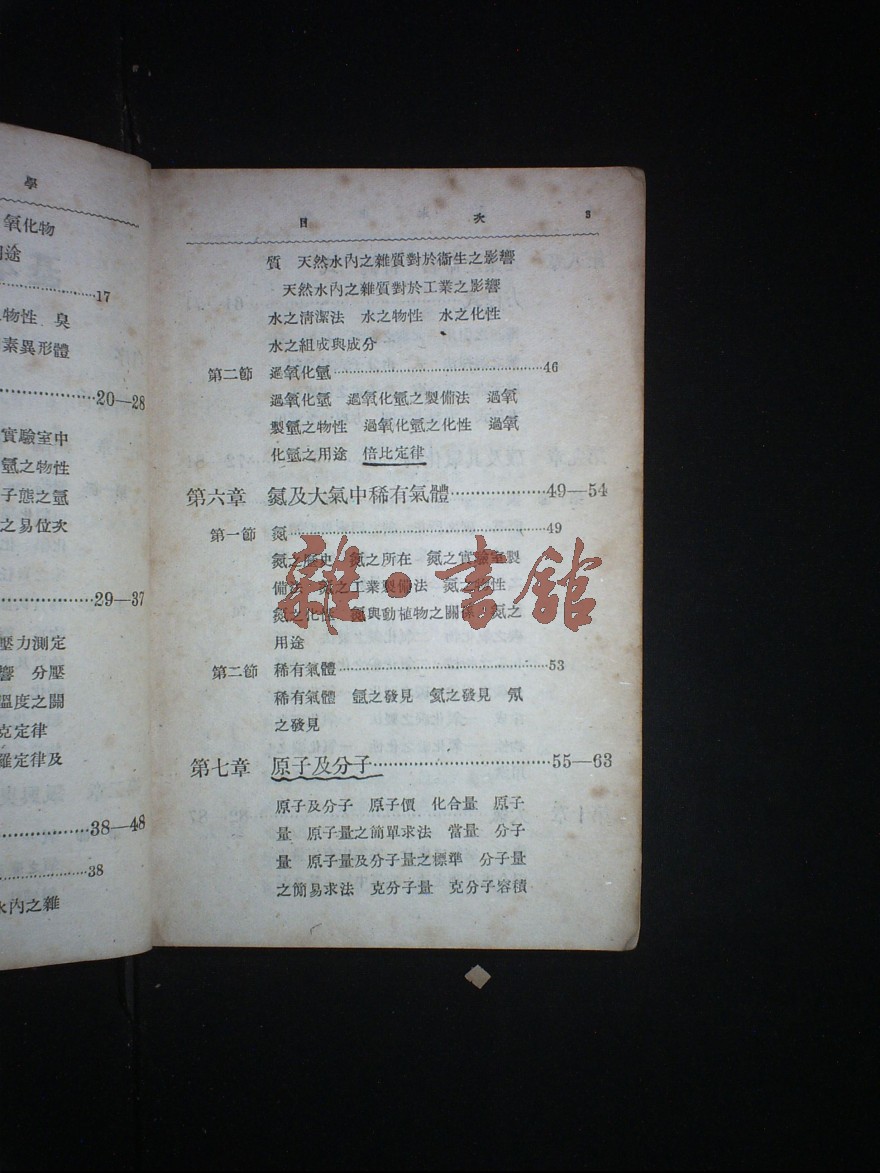 學
氧化物
用途
17
物性 臭
素異形體
20—28
實驗室中
氫之物性
子態之氫
之易位次
29—37
壓力測定
響 分壓
溫度之關
克定律
羅定律及
38—48
38
水內之雜
目 次 3
質 天然水內之雜質對於衞生之影響
天然水內之雜質對於工業之影響
水之淸潔法 水之物性 水之化性
水之組成與成分
第二節 過氧化氫 46
過氧化氫 過氧化氫之製備法 過氧
製氫之物性 過氧化氫之化性 過氧
化氫之用途 倍比定律
第六章 氮及大氣中稀有氣體 49—54
第一節 氮 49
氮之歷史 氮之所在 氮之實驗室製
備法 氮之工業製備法 氮之物性
氮之化性 氮與動植物之關係 氮之
用途
第二節 稀有氣體 53
稀有氣體 氬之發見 氦之發見 氖
之發見
第七章 原子及分子 55—63
原子及分子 原子價 化合量 原子
量 原子量之簡單求法 當量 分子
量 原子量及分子量之標準 分子量
之簡易求法 克分子量 克分子容積
雜·書館